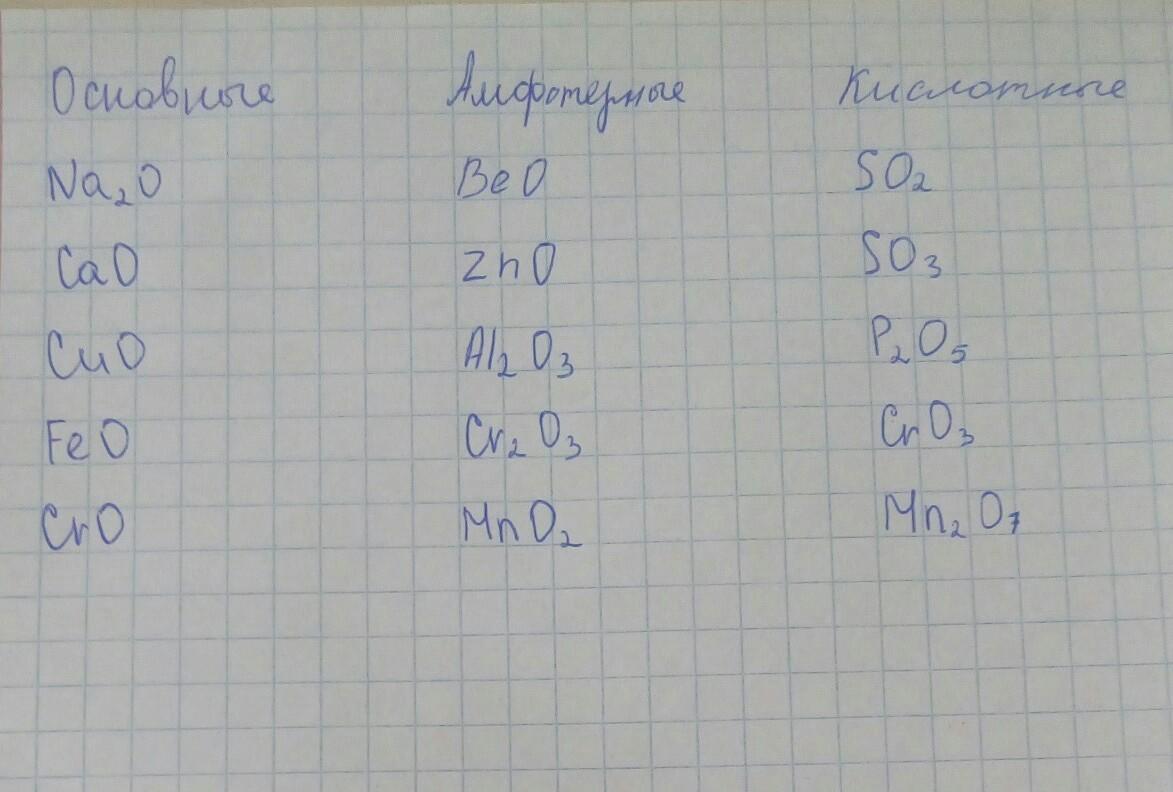 Основные Амфотерные Кислотные
Na₂O BeO SO₂
CaO ZnO SO₃
CuO Al₂O₃ P₂O₅
FeO Cr₂O₃ CrO₃
CrO MnO₂ Mn₂O₇